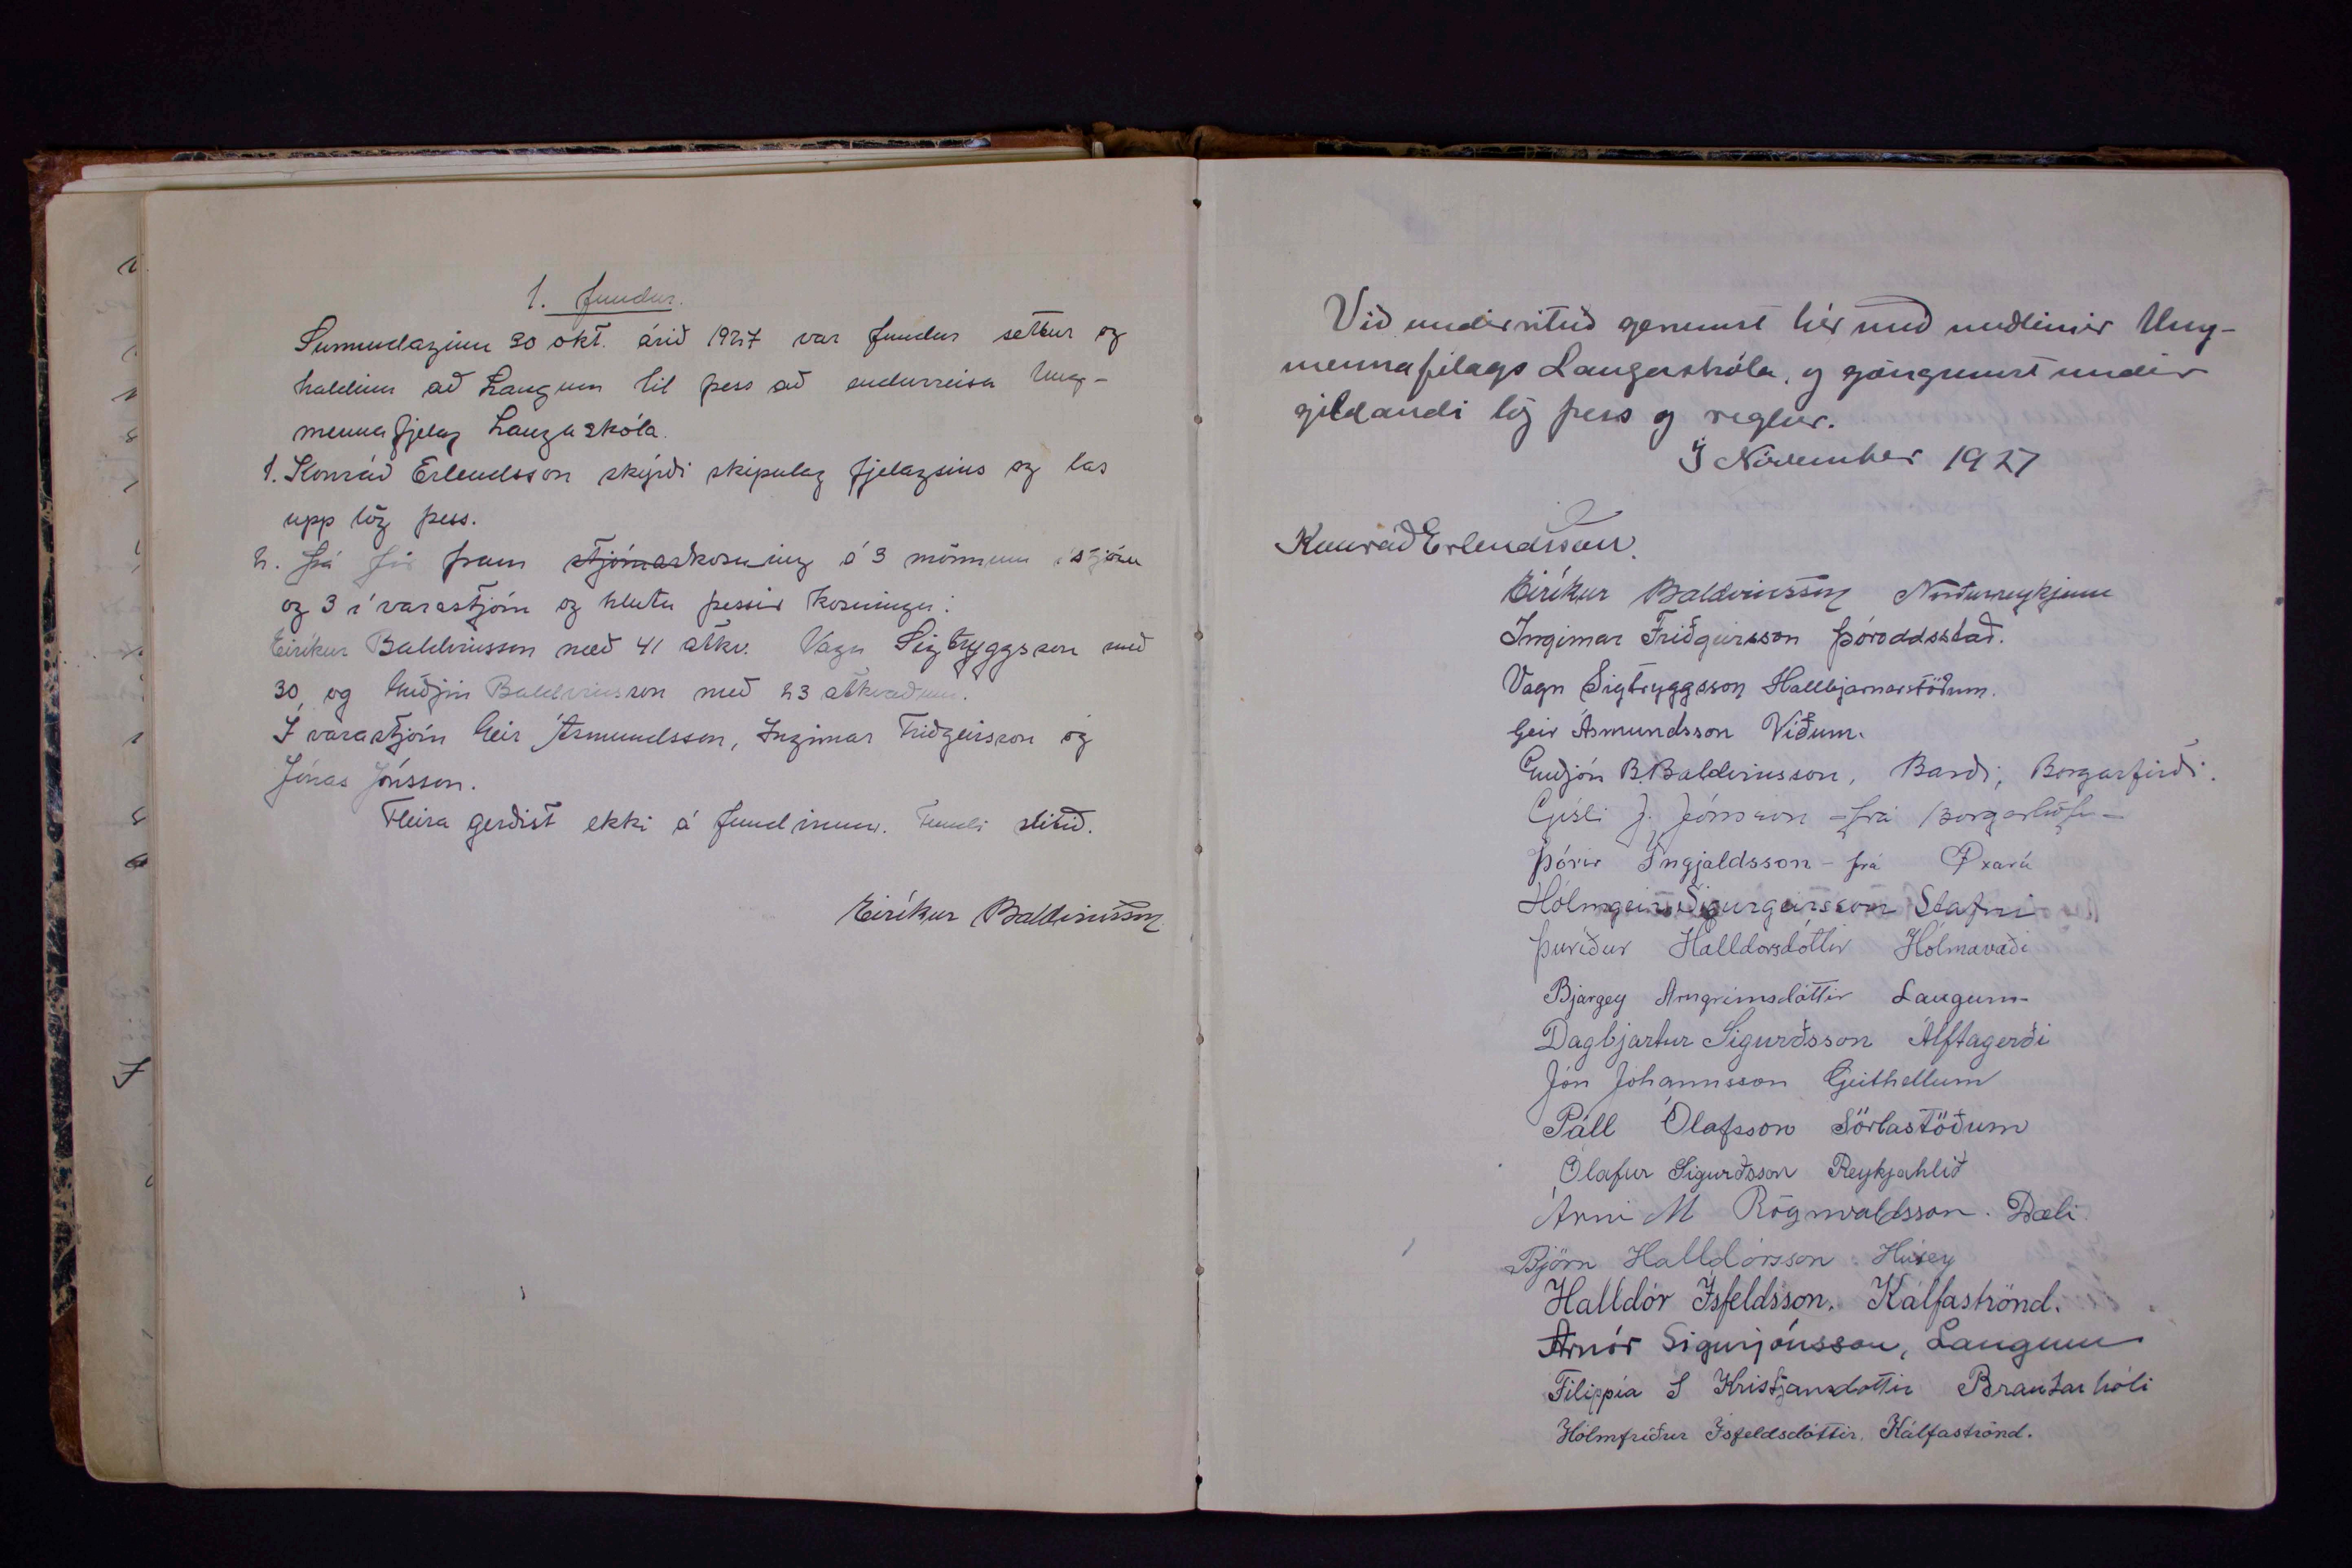 1. fundur.
Sunnudaginn 30 okt. árið 1927 var fundur settur og
haldinn að Laugum til þess að endurreisa Ung-
mennafjelag Laugaskóla.
1. Konráð Erlendsson skýrði skipulag fjelagsins og las
upp lög þess.
2. Þá fór fram stjórnarkosning á 3 mönnum í stjórn
og 3 í varastjórn og hlutu þessir kosningu:
Eiríkur Baldvinsson með 41 atkv. Vagn Sigtryggsson með
30, og Guðjón Baldvinsson með 23 atkvæðum.
Í varastjórn Geir Ásmundsson, Ingimar Friðgeirsson og
Jónas Jónsson.
Fleira gerðist ekki á fundinum. Fundi slitið.
Eiríkur Baldvinsson
Við undirrituð gerumst hér með meðlimir Ung-
mennafélags Laugaskóla, og göngumst undir
gildandi lög þess og reglur.
Í Nóvember 1927
Konráð Erlendsson.
Eiríkur Baldvinsson Norðurreykjum
Ingimar Friðgeirsson Þóroddsstað.
Vagn Sigtryggsson Hallbjarnarstöðum.
Geir Ásmundsson Víðum.
Guðjón B Baldvinsson, Barði, Borgarfirði.
Gísli J. Jónsson - frá
Þórir Ingjaldsson - frá Öxará
Hólmgeir Sigurgeirsson Stafni
Þuríður Halldorsdóttir Hólmavaði
Bjargey Arngrimsdóttir Laugum-
Dagbjartur Sigurðsson Álftagerði
Jón Jóhannsson Geithellum
Páll Ólafsson Sörlastöðum
Ólafur Sigurðsson Reykjahlið
Árni M Rögnvaldsson. Dæli.
Björn Halldórsson Húsey
Halldór Ísfeldsson. Kálfaströnd.
Arnór Sigurjónsson, Laugum
Filippía S Kristjansdottir Brautarhóli
Hólmfríður Ísfeldsdóttir. Kálfaströnd.